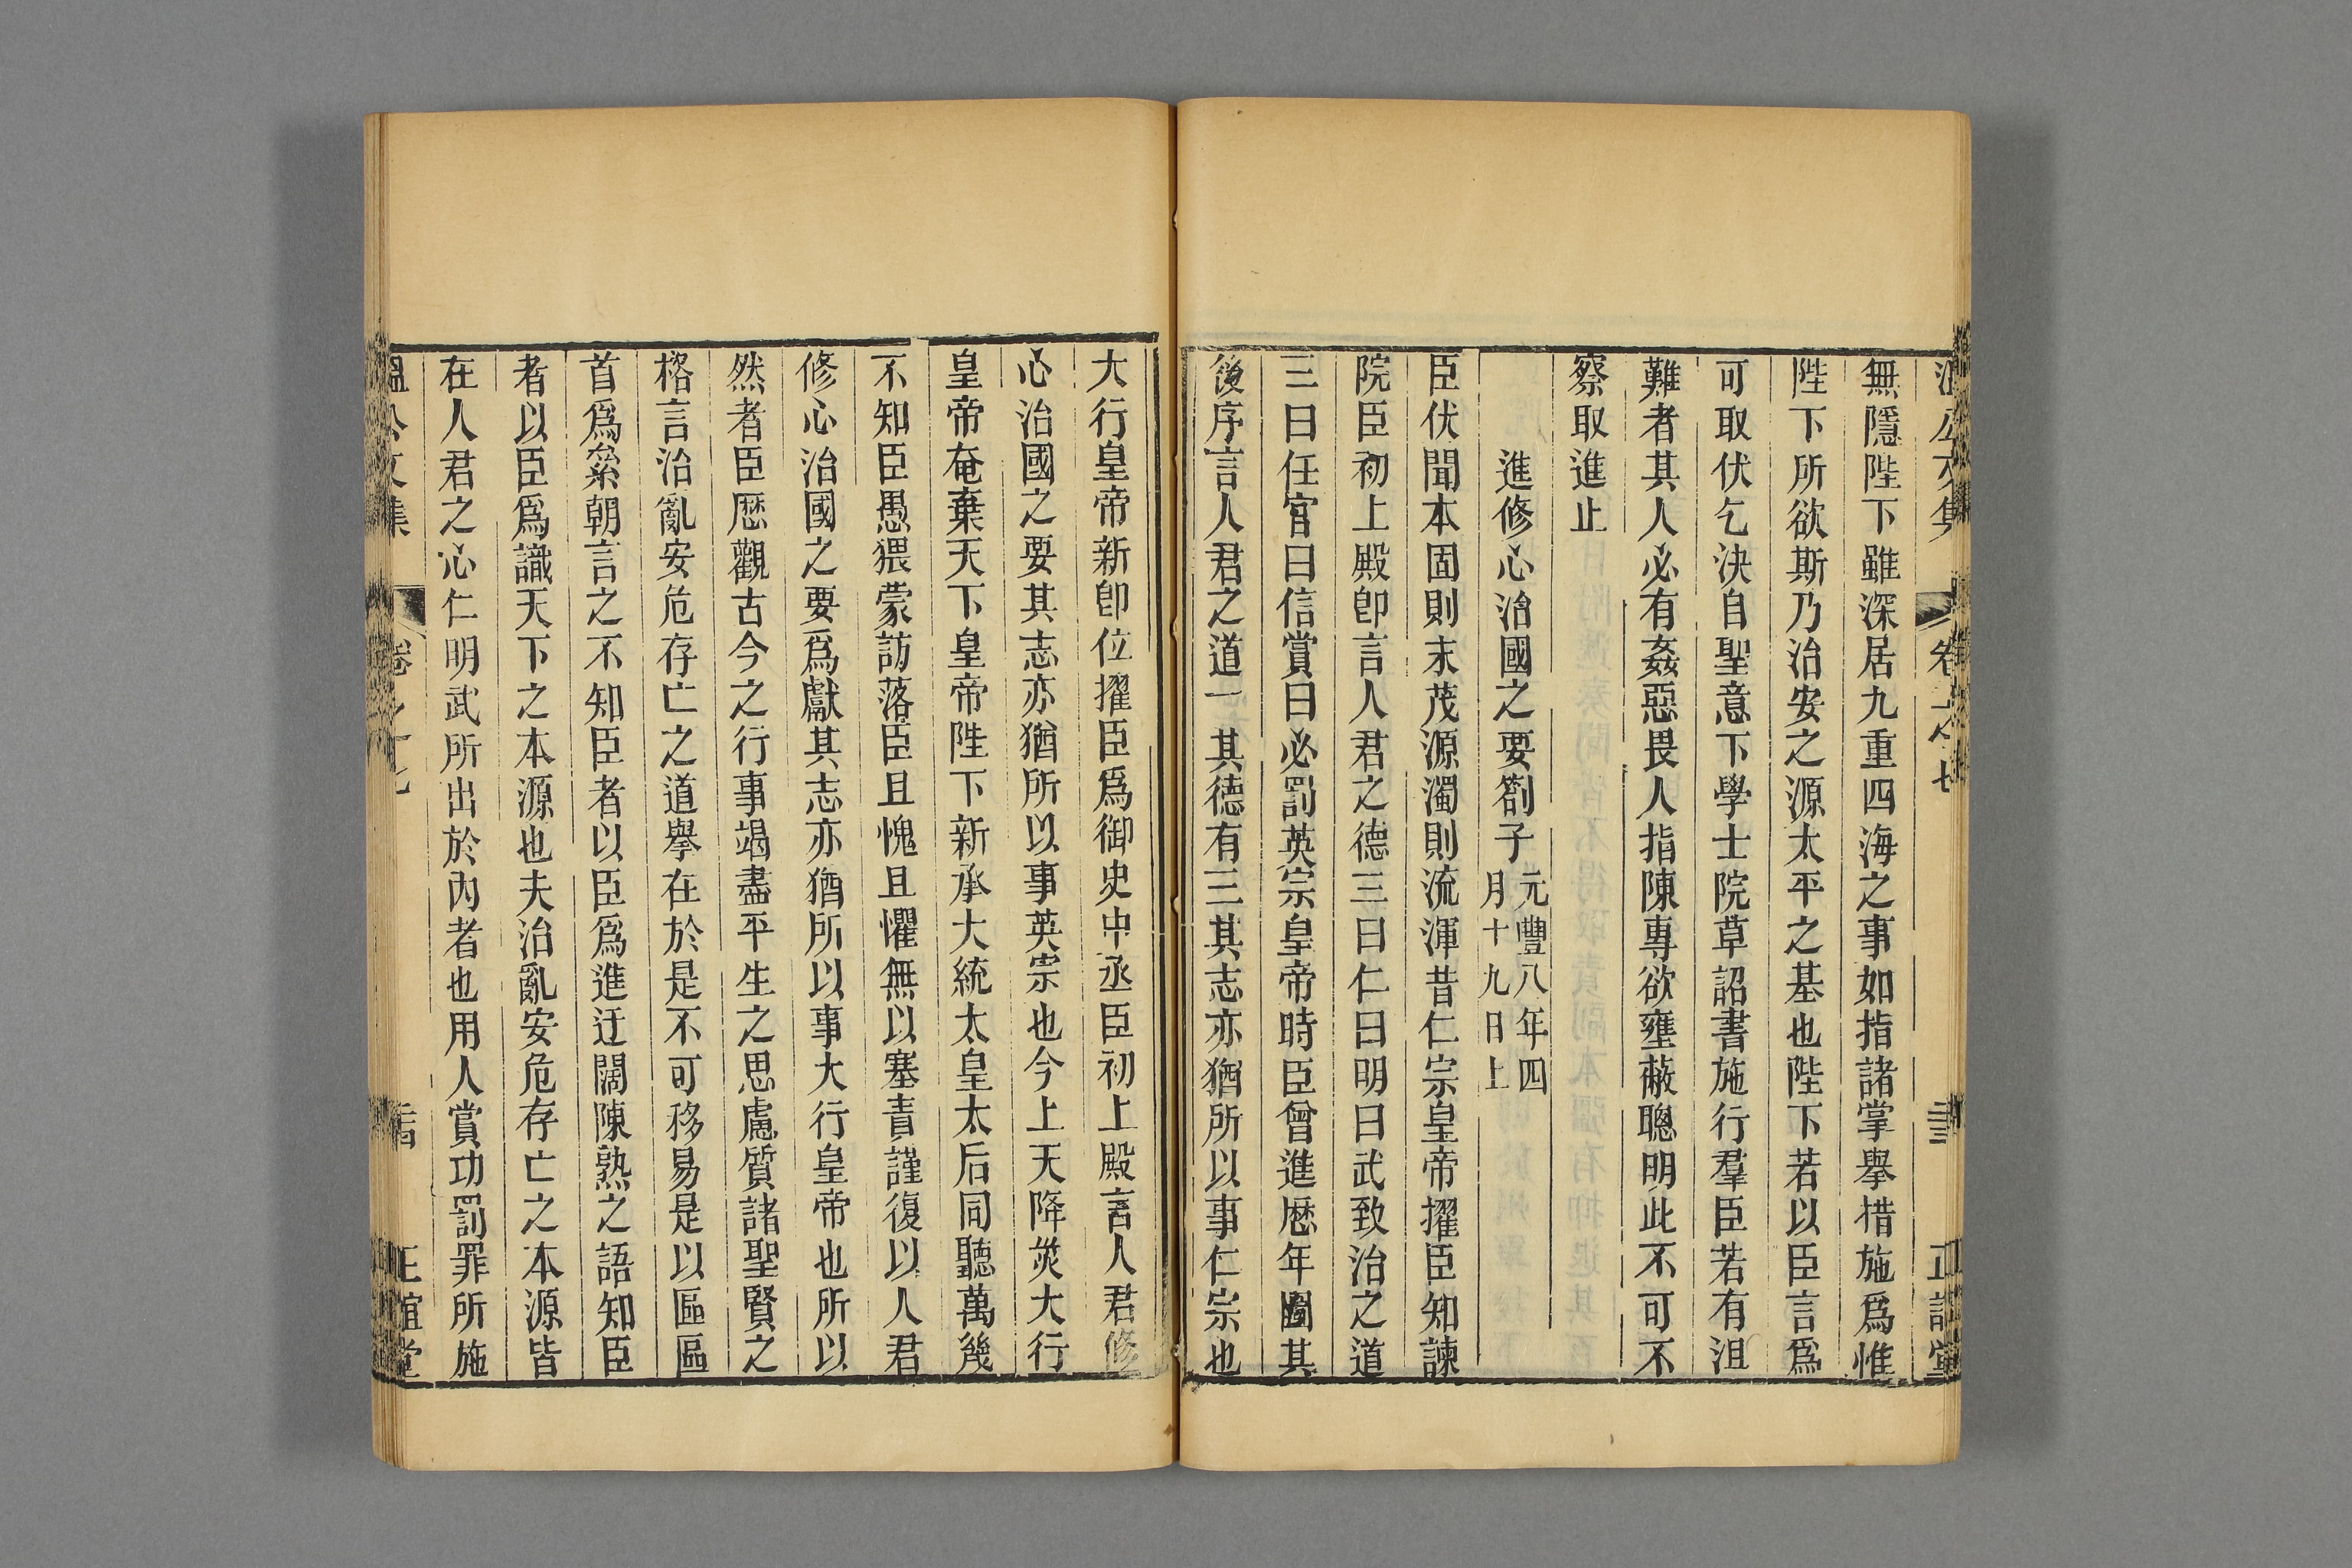 無隱陛下雖深居九重四海之事如指諸掌舉措施爲惟
陛下所欲斯乃治安之源太平之基也陛下若以臣言爲
可取伏乞決自聖意下學士院草詔書施行羣臣若有沮
難者其人必有姦惡畏人指陳專欲壅蔽聰明此不可不
察取進止
進修心治國之要劄子
元豐八年四
月十九日上
臣伏聞本固則末茂源濁則流渾昔仁宗皇帝擢臣知諫
院臣初上殿卽言人君之德三曰仁曰明曰武致治之道
三曰任官曰信賞曰必罰英宗皇帝時臣曾進歷年圖其
後序言人君之道一其德有三其志亦猶所以事仁宗也
大行皇帝新卽位擢臣爲御史中丞臣初上殿言人君修
心治國之要其志亦猶所以事英宗也今上天降災大行
皇帝奄棄天下皇帝陛下新承大統太皇太后同聽萬幾
不知臣愚猥蒙訪落臣且愧且懼無以塞責謹復以人君
修心治國之要爲獻其志亦猶所以事大行皇帝也所以
然者臣歷觀古今之行事竭盡平生之思慮質諸聖賢之
格言治亂安危存亡之道舉在於是不可移易是以區區
首爲絫朝言之不知臣者以臣爲進迂闊陳熟之語知臣
者以臣爲識天下之本源也夫治亂安危存亡之本源皆
在人君之心仁明武所出於內者也用人賞功罰罪所施
溫公文集 卷之十七 三四 正誼堂